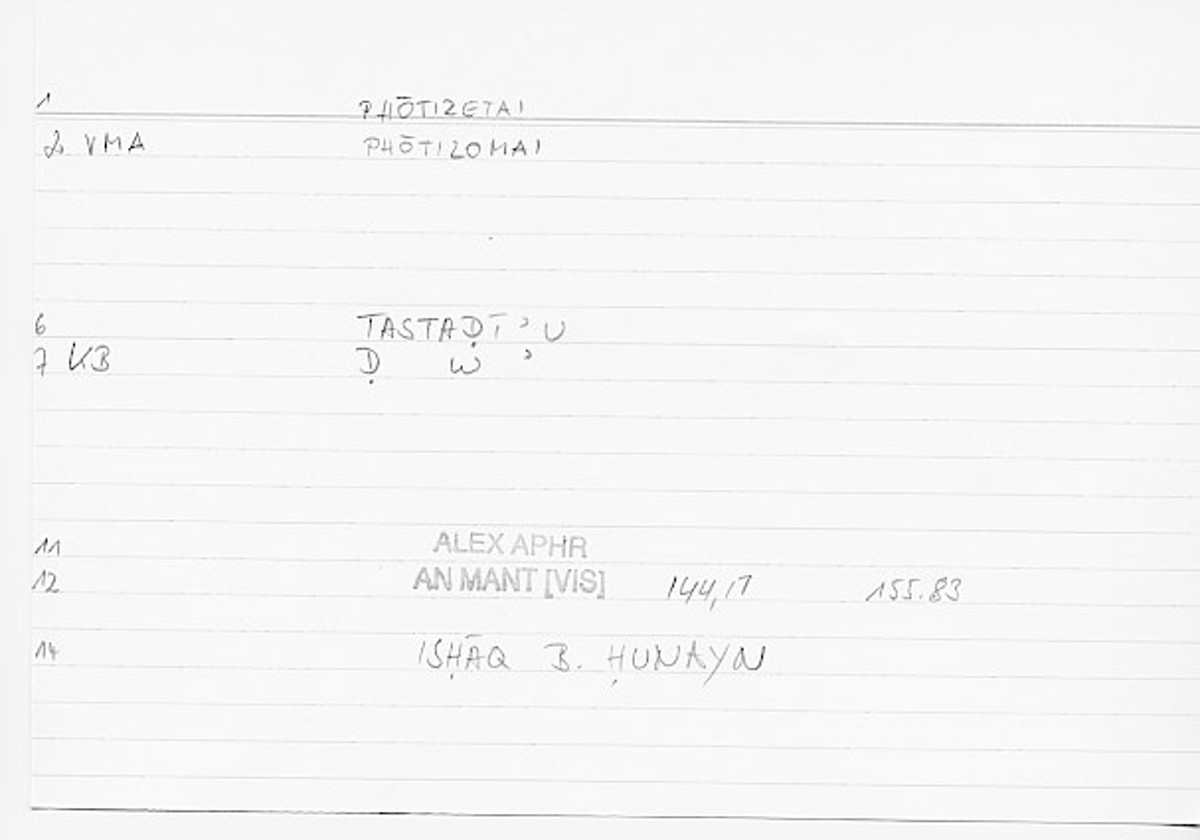 1 PHŌTIZETAI
2. VMA PHŌTIZOMAI
6 TASTAḌĪʾU
7 KB Ḍ W ʾ
11 ALEX APHR
12 AN MANT [VIS] 144,17 155.83
14 ISḤĀQ B. ḤUNAYN